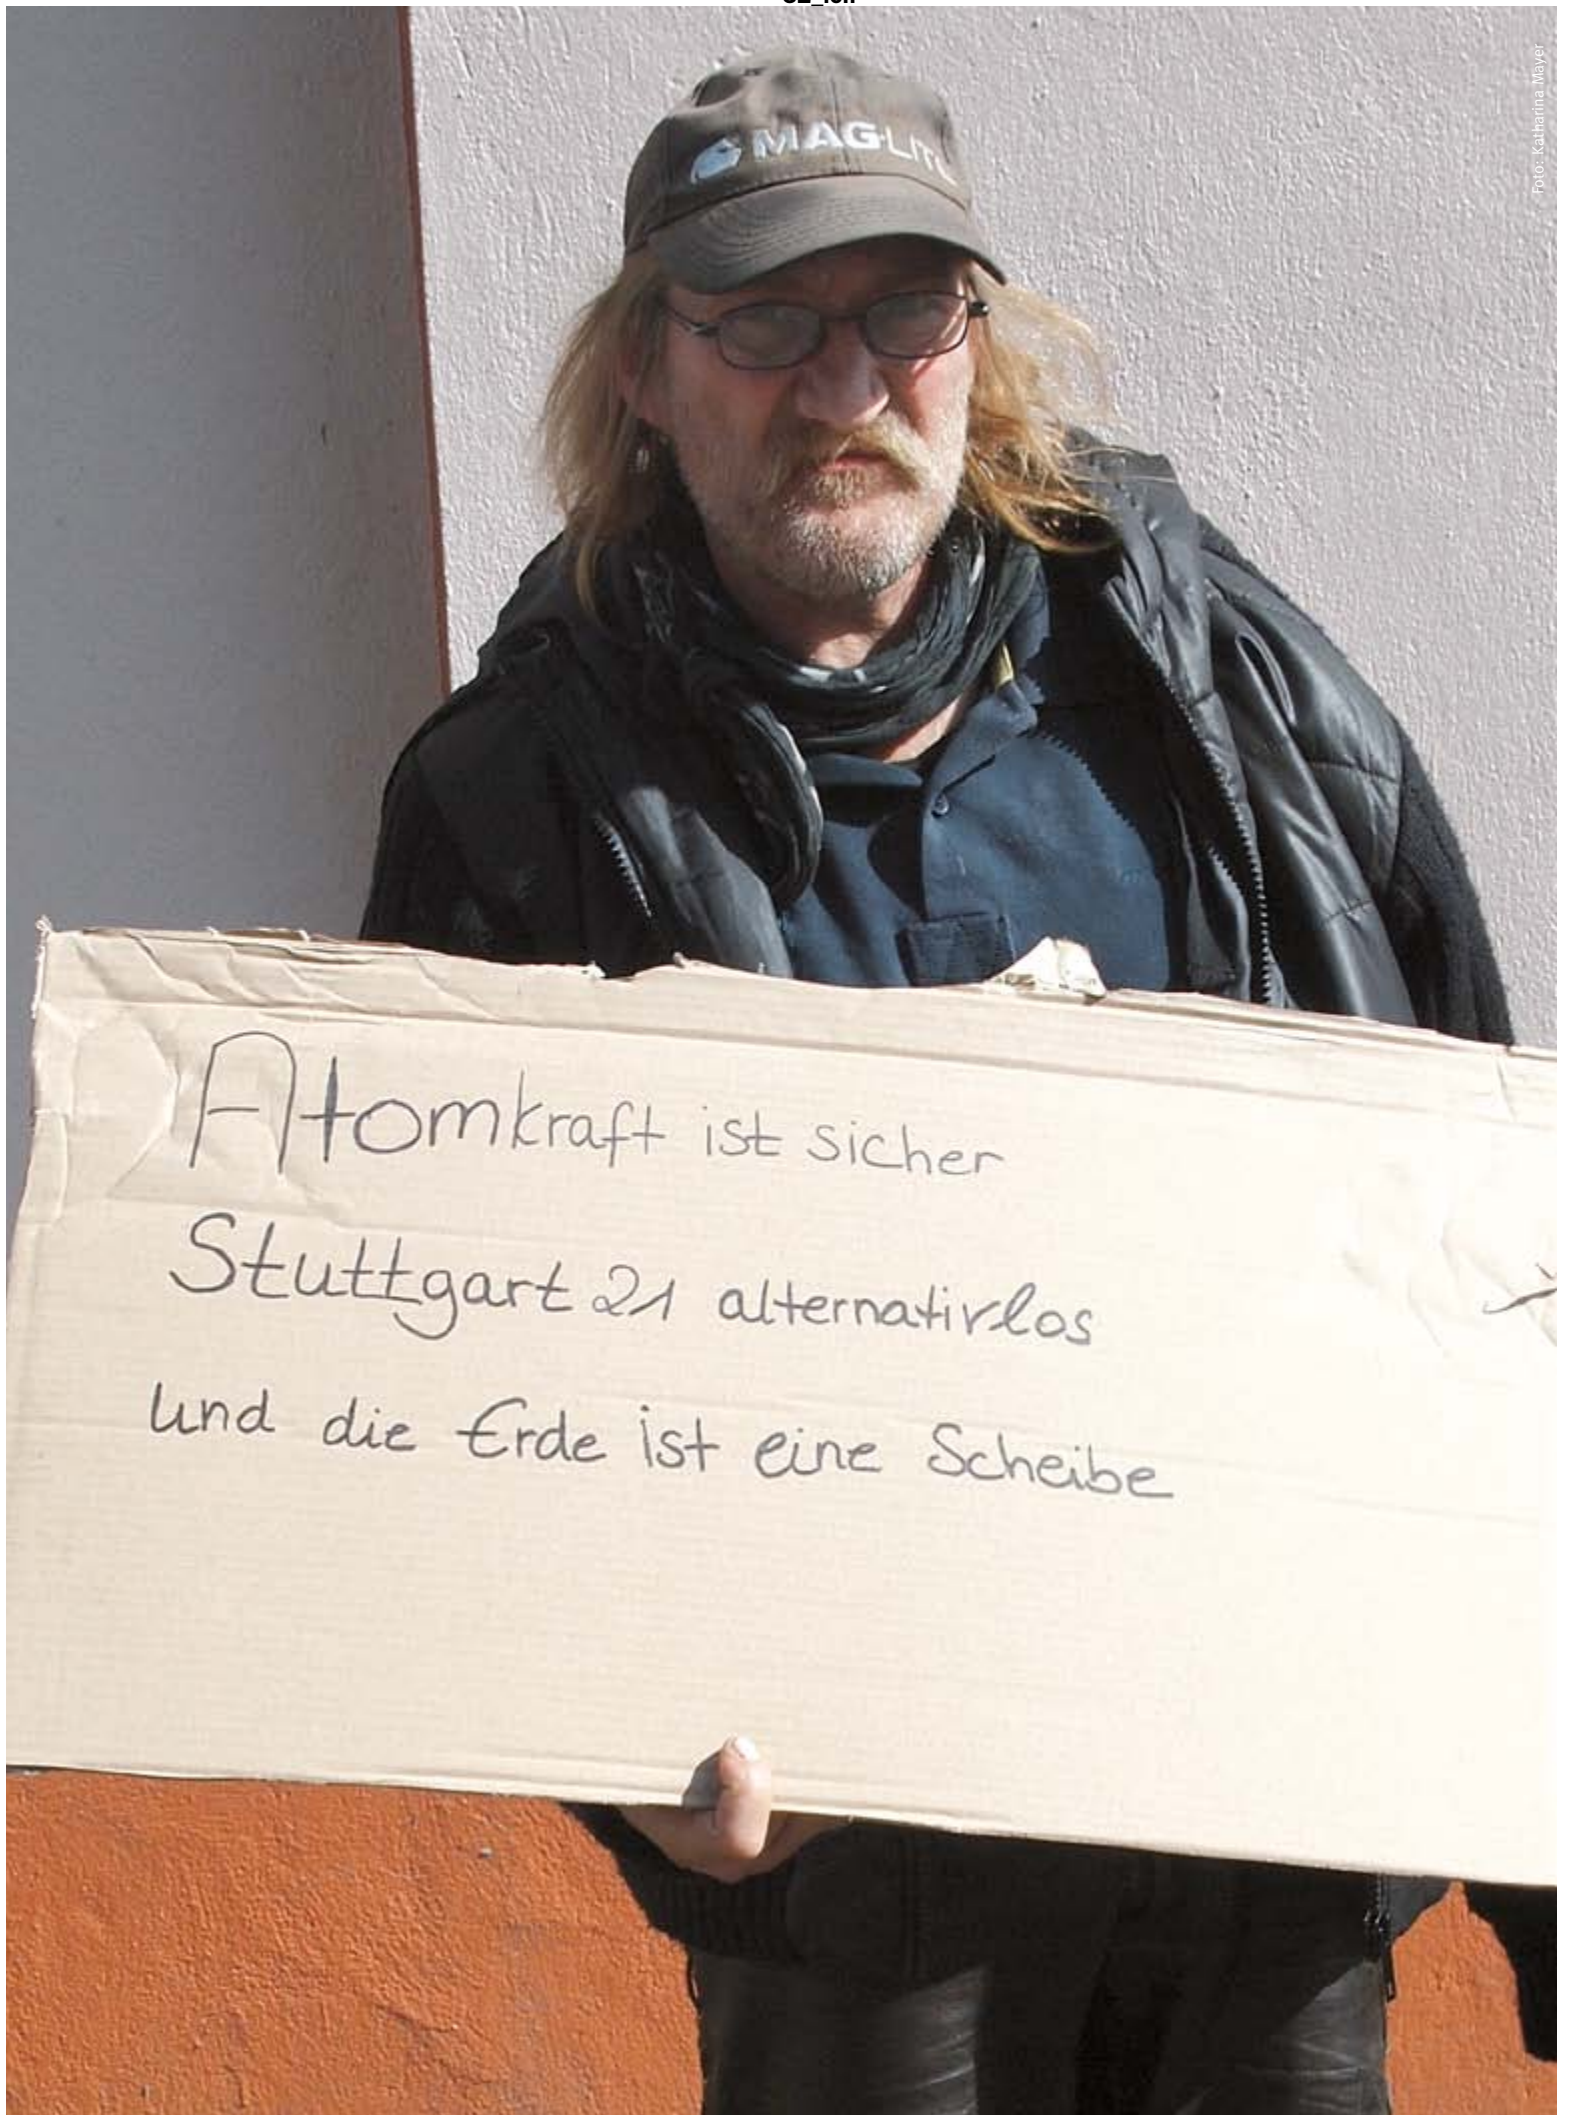 Foto: Katharina Mayer
MAG-LITE
Atomkraft ist sicher
Stuttgart 21 alternativlos
und die Erde ist eine Scheibe